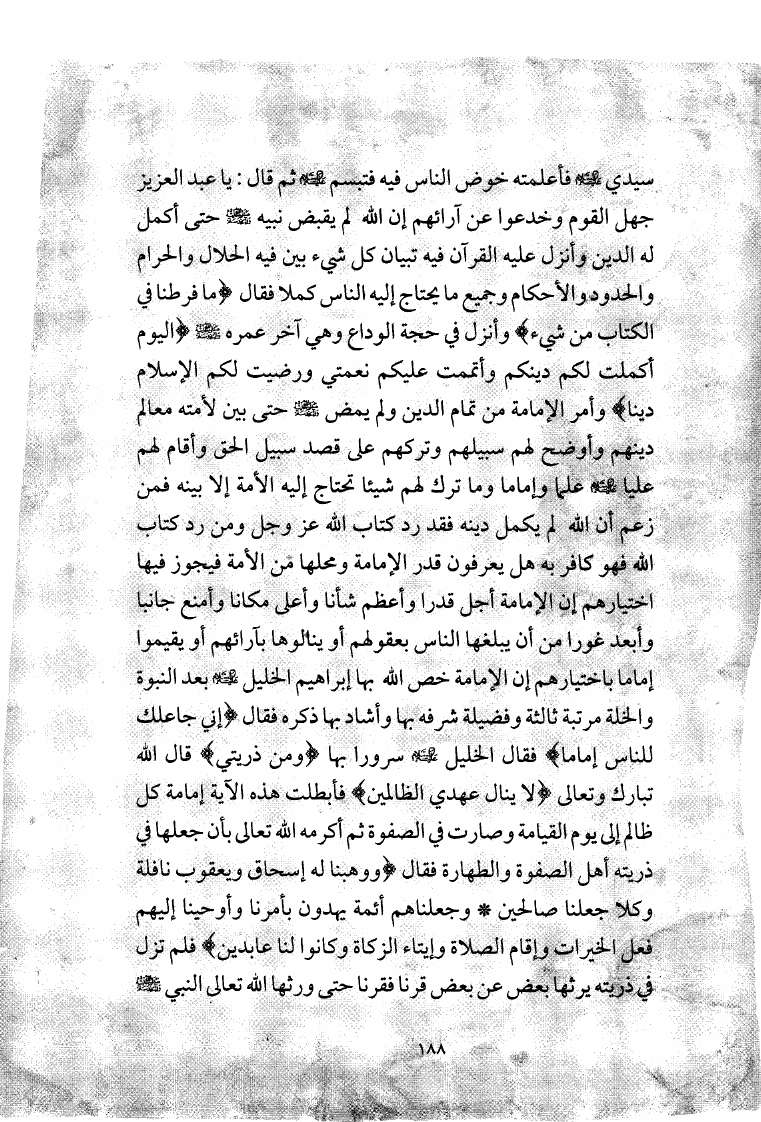 سيدي ﵇ فأعلمته خوض الناس فيه فتبسم ﵇ ثم قال : يا عبد العزيز
جهل القوم وخدعوا عن آرائهم إن الله لم يقبض نبيه ﷺ حتى أكمل
له الدين وأنزل عليه القرآن فيه تبيان كل شيء بين فيه الحلال والحرام
والحدود والأحكام وجميع ما يحتاج إليه الناس كملا فقال ﴿ما فرطنا في
الكتاب من شيء﴾ وأنزل في حجة الوداع وهي آخر عمره ﷺ ﴿اليوم
أكملت لكم دينكم وأتممت عليكم نعمتي ورضيت لكم الإسلام
دينا﴾ وأمر الإمامة من تمام الدين ولم يمض ﷺ حتى بين لأمته معالم
دينهم وأوضح لهم سبيلهم وتركهم على قصد سبيل الحق وأقام لهم
عليا ﵇ علما وإماما وما ترك لهم شيئا تحتاج إليه الأمة إلا بينه فمن
زعم أن الله لم يكمل دينه فقد رد كتاب الله عز وجل ومن رد كتاب
الله فهو كافر به هل يعرفون قدر الإمامة ومحلها من الأمة فيجوز فيها
اختيارهم إن الإمامة أجل قدرا وأعظم شأنا وأعلى مكانا وأمنع جانبا
وأبعد غورا من أن يبلغها الناس بعقولهم أو ينالوها بآرائهم أو يقيموا
إماما باختيارهم إن الإمامة خص الله بها إبراهيم الخليل ﵇ بعد النبوة
والخلة مرتبة ثالثة وفضيلة شرفه بها وأشاد بها ذكره فقال ﴿إني جاعلك
للناس إماما﴾ فقال الخليل ﵇ سرورا بها ﴿ومن ذريتي﴾ قال الله
تبارك وتعالى ﴿لا ينال عهدي الظالمين﴾ فأبطلت هذه الآية إمامة كل
ظالم إلى يوم القيامة وصارت في الصفوة ثم أكرمه الله تعالى بأن جعلها في
ذريته أهل الصفوة والطهارة فقال ﴿ووهبنا له إسحاق ويعقوب نافلة
وكلا جعلنا صالحين * وجعلناهم أئمة يهدون بأمرنا وأوحينا إليهم
فعل الخيرات وإقام الصلاة وإيتاء الزكاة وكانوا لنا عابدين﴾ فلم تزل
في ذريته يرثها بعض عن بعض قرنا فقرنا حتى ورثها الله تعالى النبي ﷺ
١٨٨